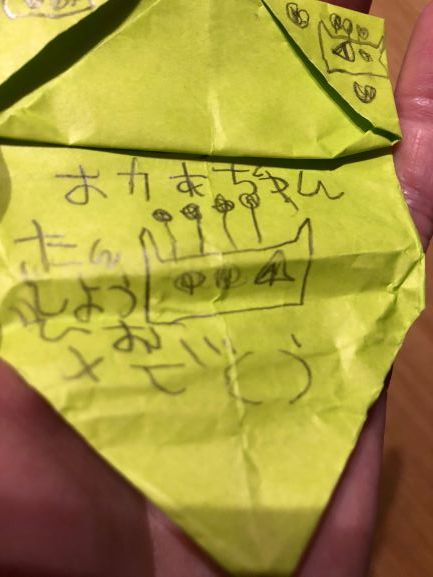 おかあちゃん
たん
じょう
びお
めでとう